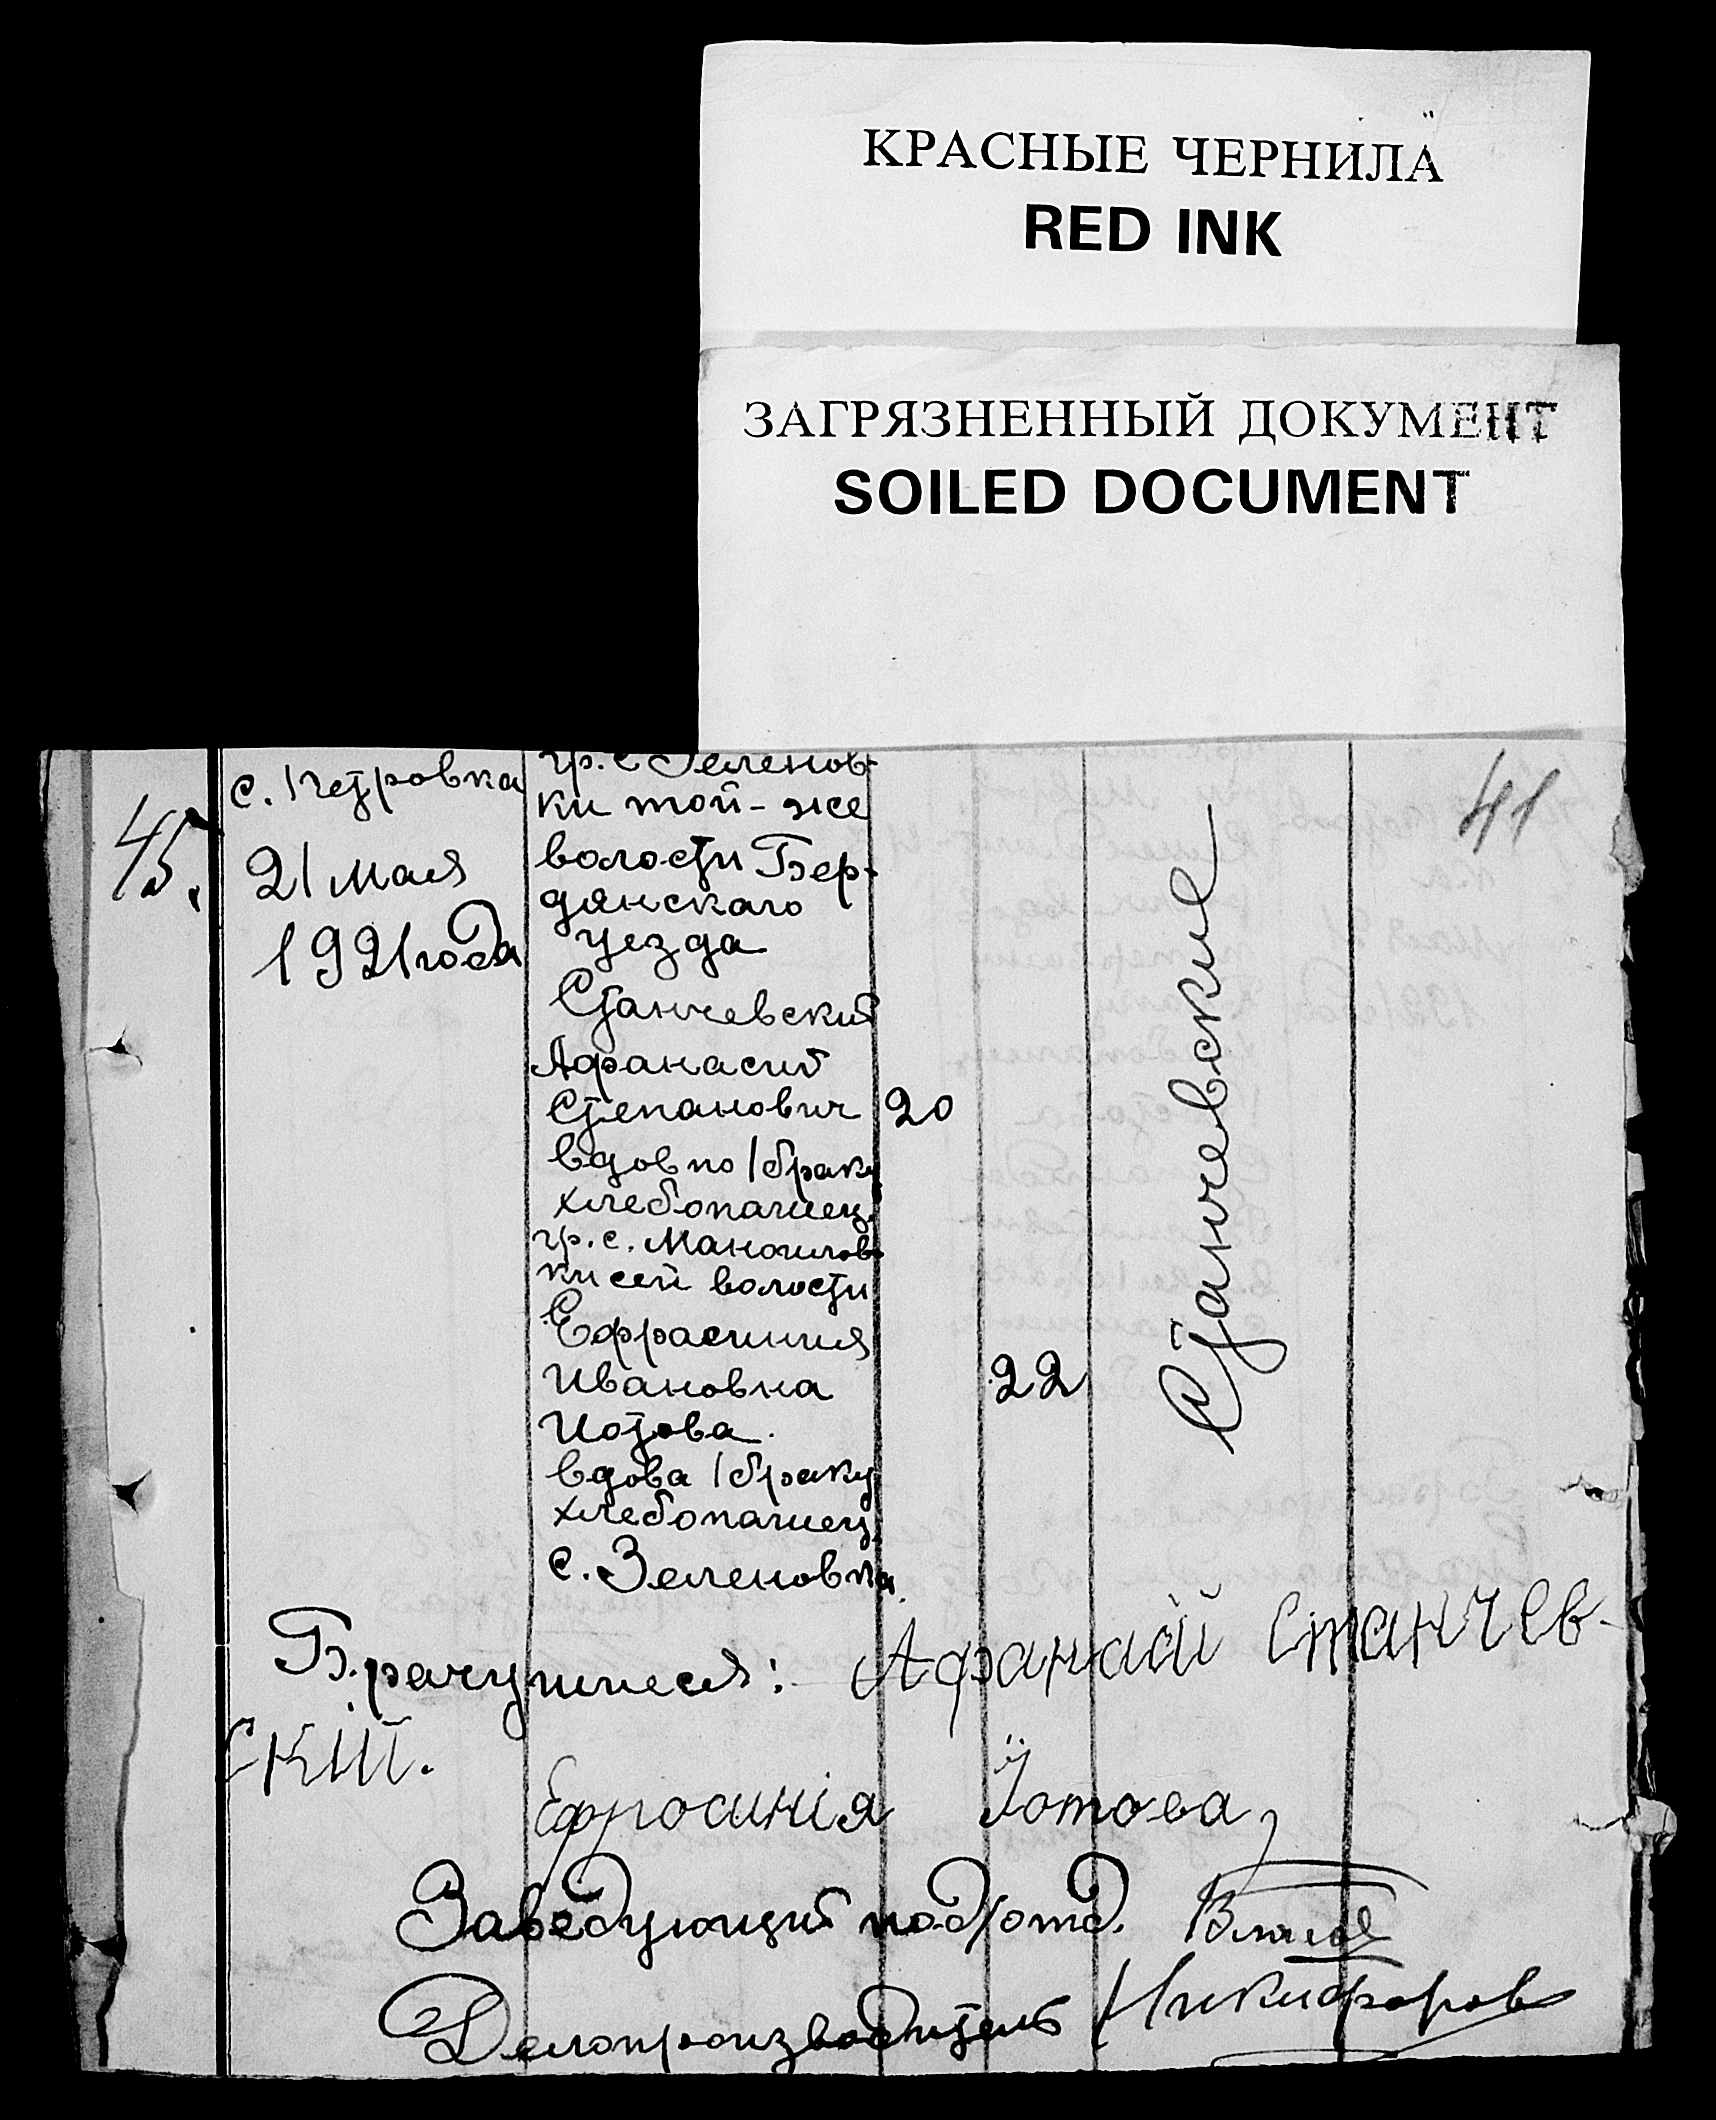 КРАСНЫЕ ЧЕРНИЛА
RED INK
ЗАГРЯЗНЕННЫЙ ДОКУМЕНТ
SOILED DOCUMENT
41
45.
с. Петровка
21 мая
1921 года
гр. с Зеленов-
ки той-же
волости Бер-
дянскаго
уезда
Станчевский
Афанасий
Степанович 20
вдов по 1 браку
хлебопашец.
гр. с. Маноилов-
ки сей волости
Ефрасиния
Ивановна 22
Иотова.
вдова 1 браку
хлебопашец.
с. Зеленовка.
Станчевские
Брачущиеся: Афанасий Станчев-
скій.
Ефросинія Йотова,
Заведующий под/отд.
Делопроизводитель Никифоров